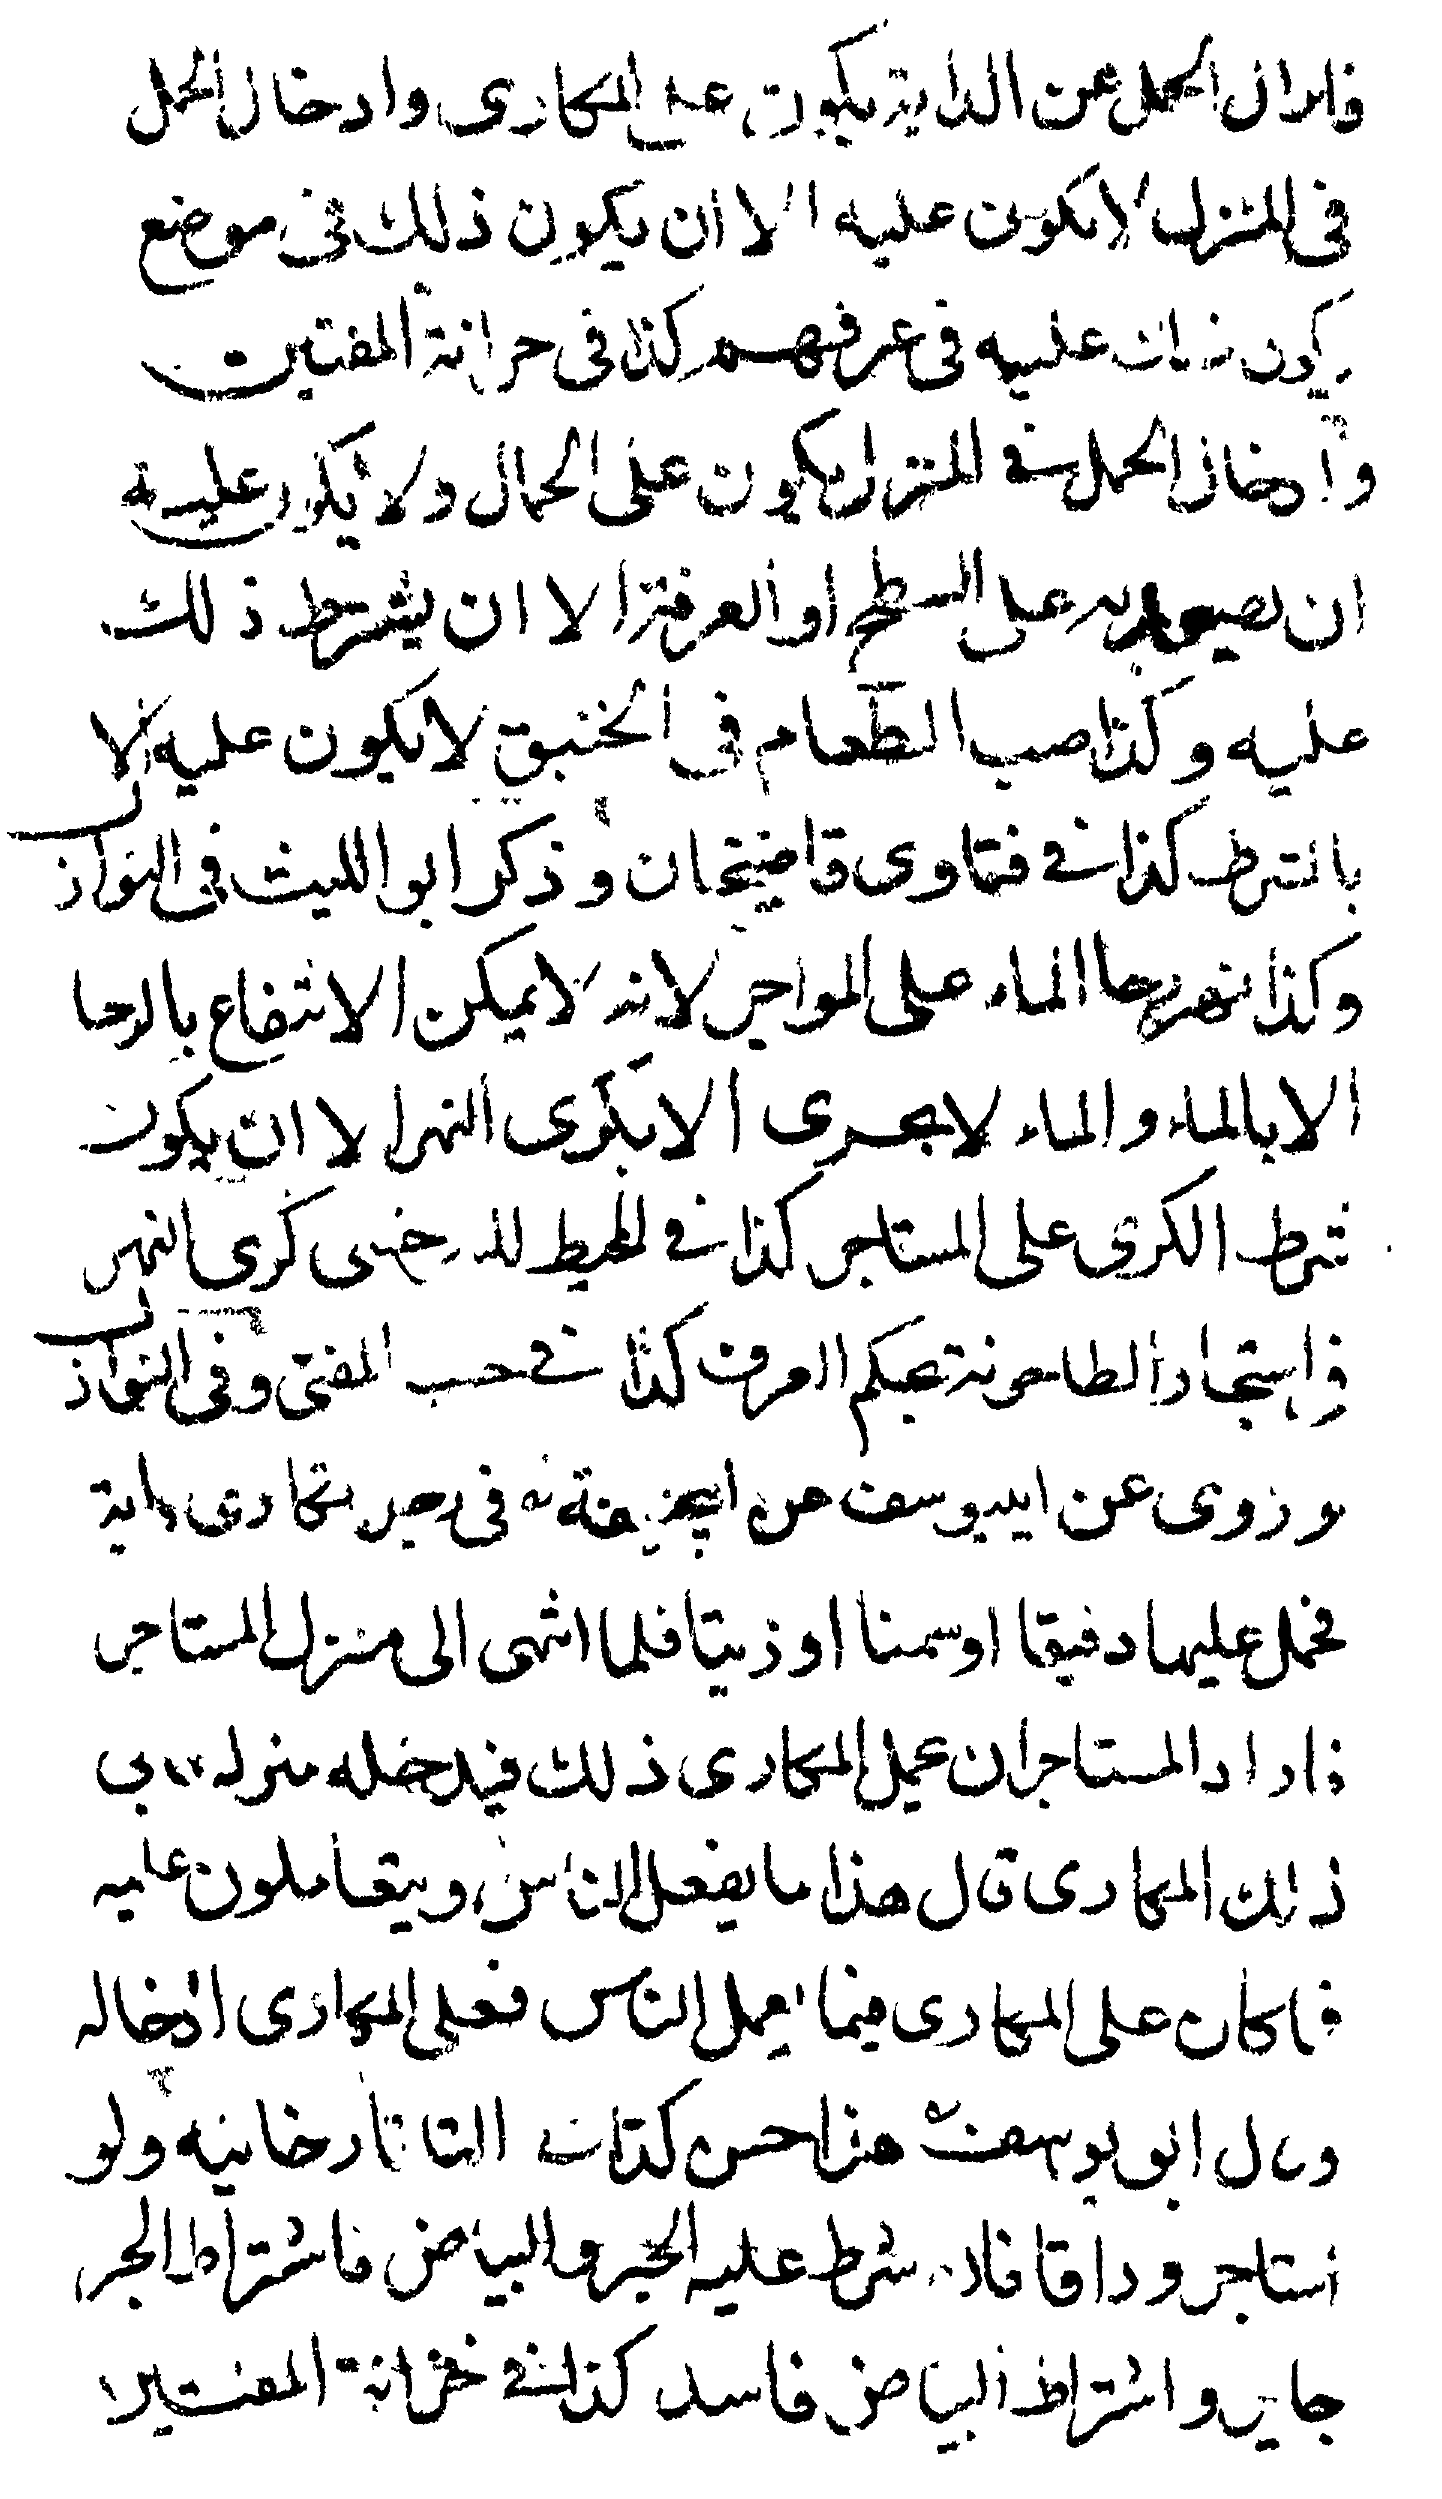 فانزال الحمل عن الدابة يكون على المكارى وادخال الحمل
فى المنزل لا يكون عليه الا ان يكون ذلك فى موضع
يكون ذلك عليه فى عرفهم كذا فى خزانة المفتين
وادخال الحمل فى المنزل يكون على الحمال ولا يكون عليه
ان يصعد به على السطح او الغرفة الا ان يشترط ذلك
عليه وكذا صب الطعام فى الخنبق لا يكون عليه الا
بالشرط كذا فى فتاوى قاضيخان وذكر ابو الليث فى النوازل
وكذا نهر رحا الماء على المواجر لانه لا يمكن الانتفاع بالرحا
الا بالماء والماء لا يجرى الا بكرى النهر الا ان يكون
شرط الكرى على المستاجر كذا فى المحيط للسرخسى كرى النهر
فى استيجار الطاحونة بحكم العرف كذا فى حسب المفتى وفى النوازل
وروى عن ابى يوسف عن ابيحنيفة فى رجل تكارى دابة
فحمل عليها دقيقا او سمنا او زيتا فلما انتهى الى منزل المستاجر
فاراد المستاجر ان يحمل المكارى ذلك فيدخله منزله وابى
ذلك المكارى قال هذا ما يفعل الناس ويتعاملون عليه
فان كان على المكارى فيما يعمل الناس فعلى المكارى ادخاله
وقال ابو يوسف هذا حسن كذا فى التاتارخانيه ولو
استاجر وراقا فان شرط عليه الحبر والبياض فاشتراط الحبر
جايز واشتراط البياض فاسد كذا فى خزانة المفتين